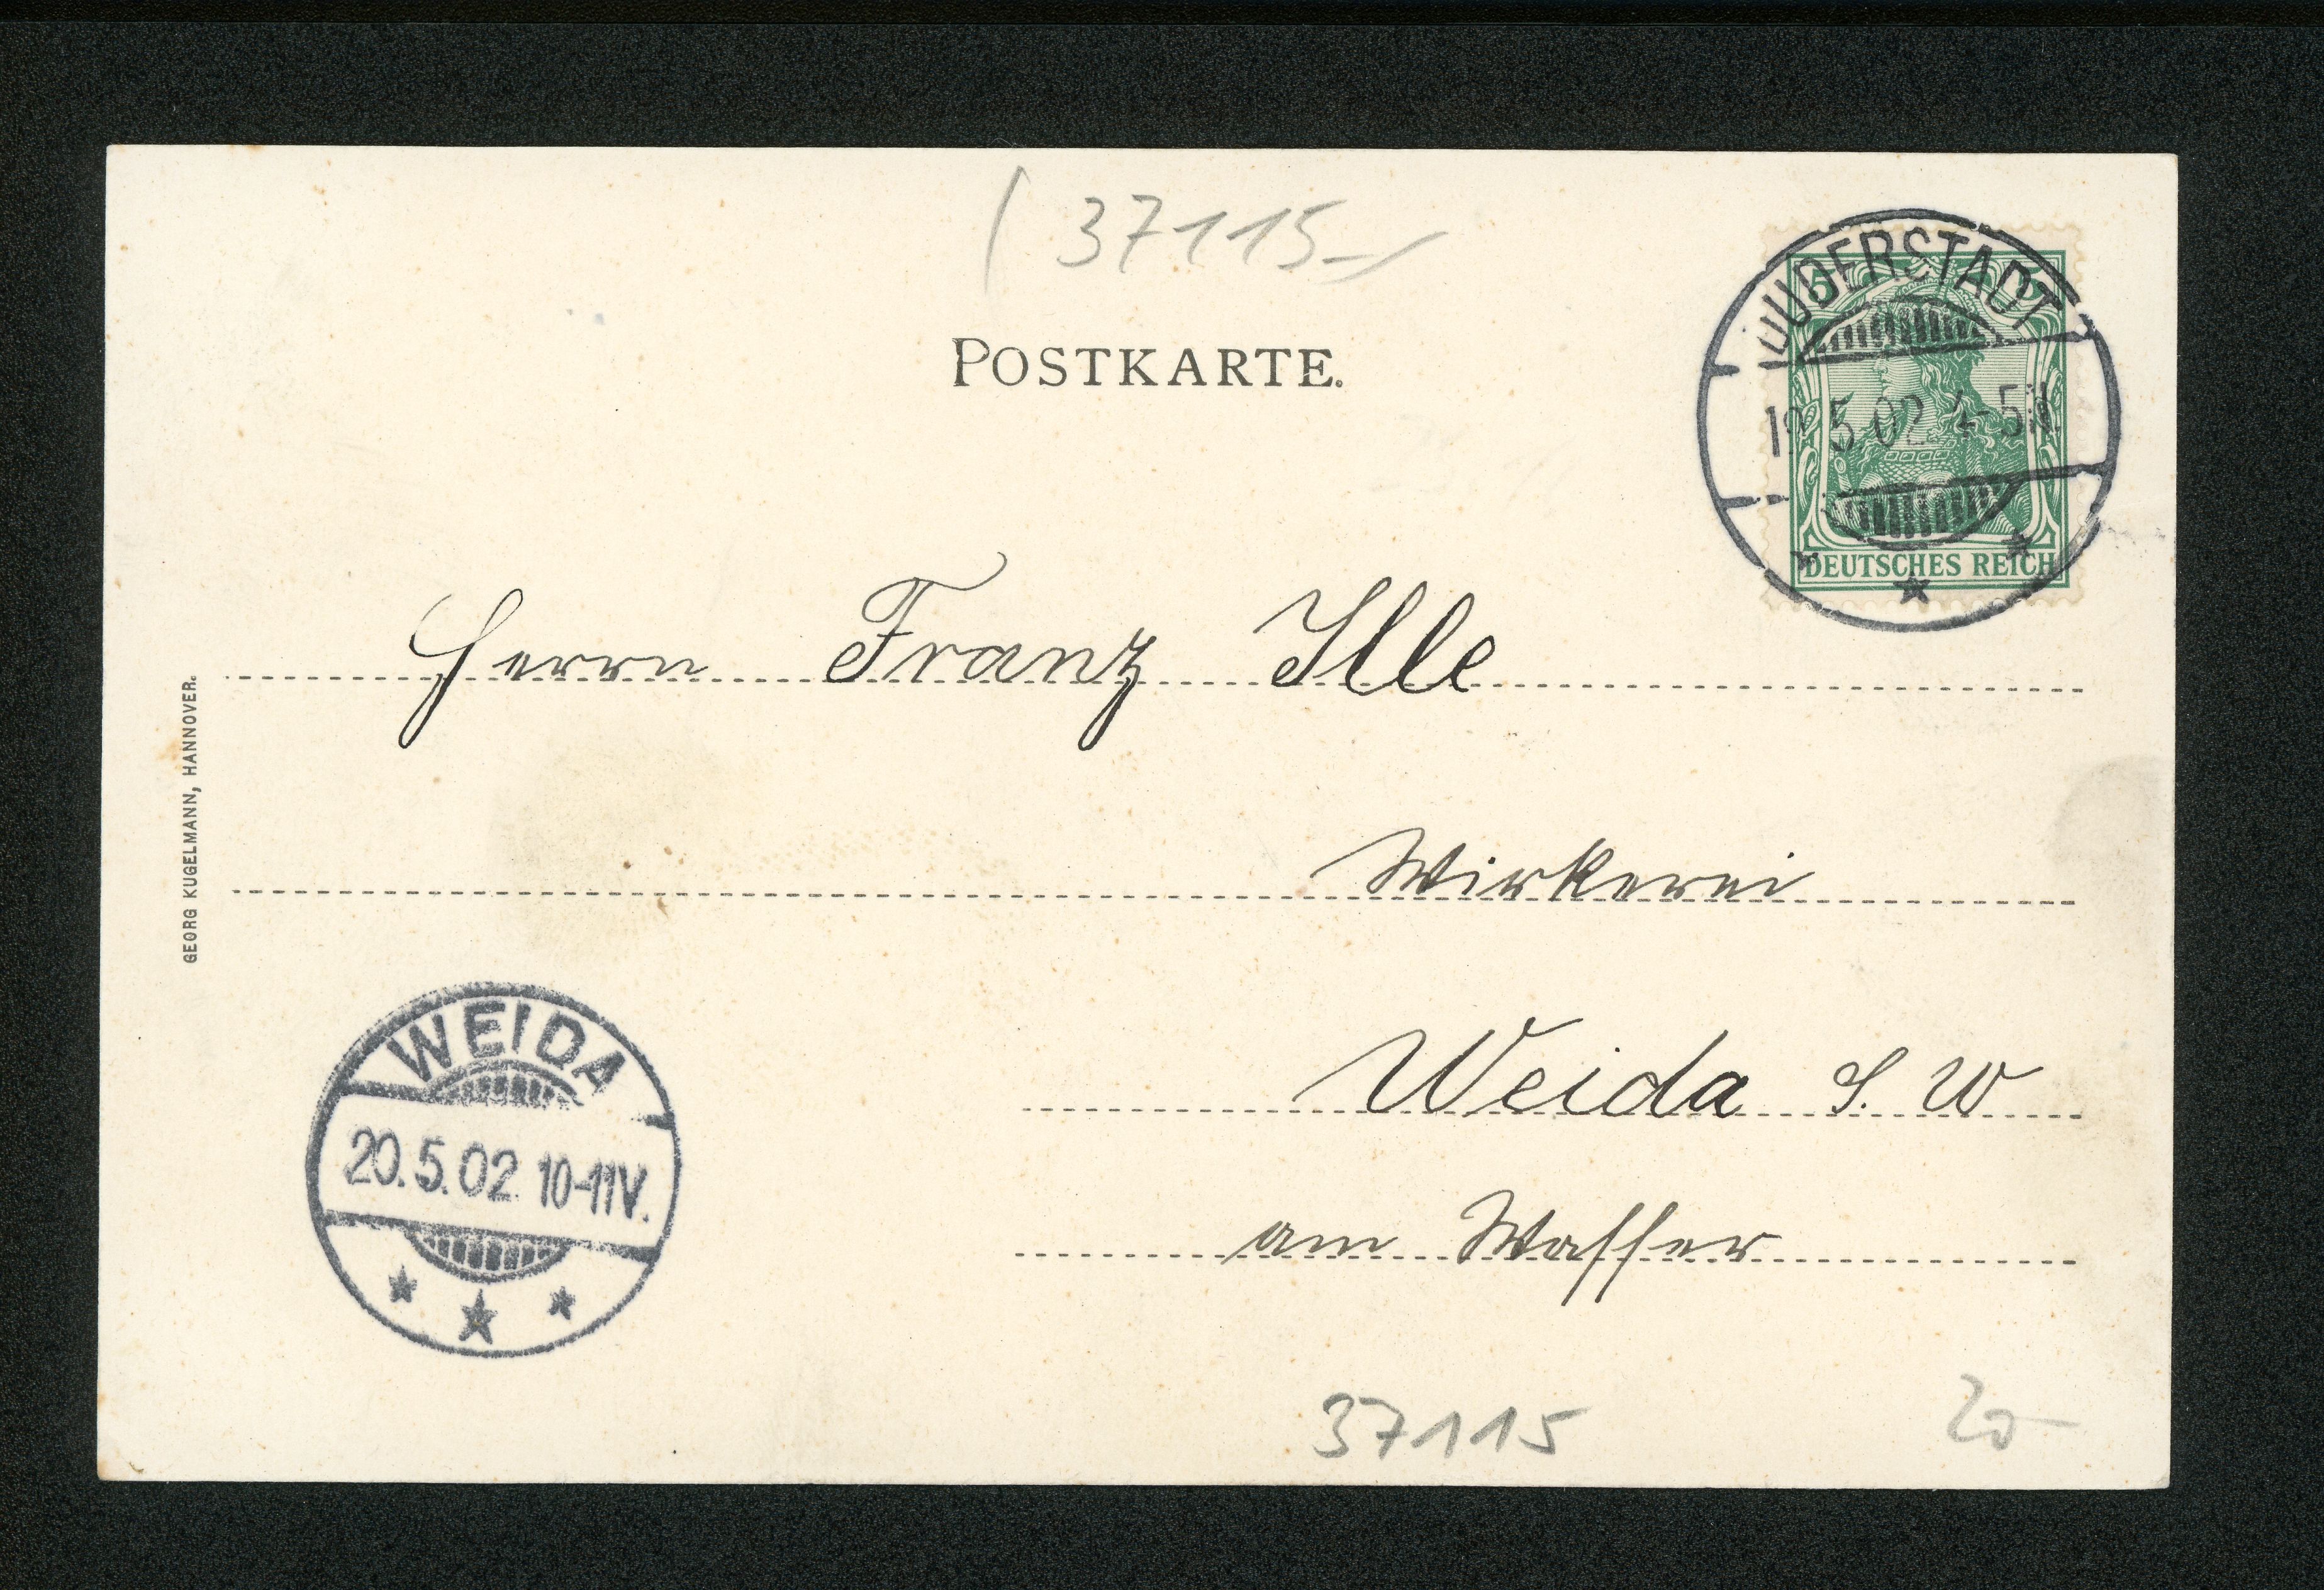 37115-
POSTKARTE.
DUDERSTADT
19.5.02 4-5N.
5 5
DEUTSCHES REICH
Herrn Franz Ille
Wirkerei
Weida S. W
am Wasser
GEORG KUGELMANN, HANNOVER.
WEIDA
20.5.02 10-11V.
37115
20-